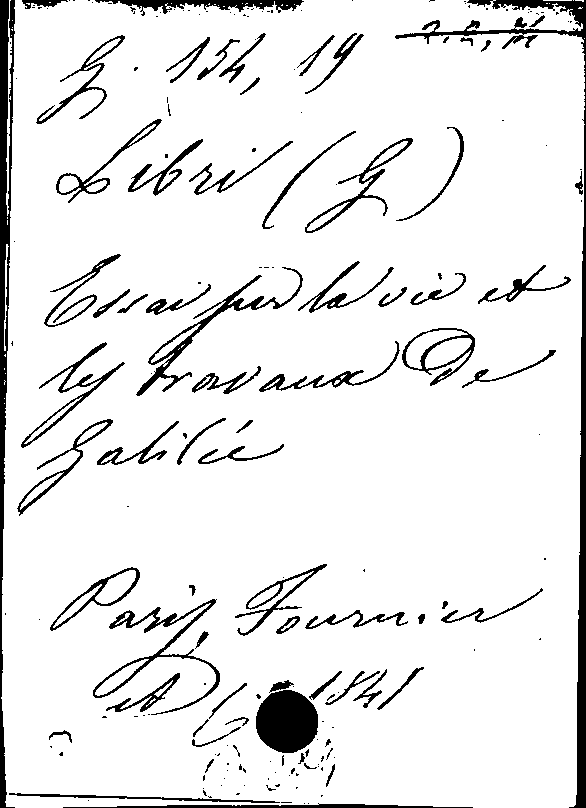 G. 154, 19
Libri (G)
Essai sur la vie et
les travaux de
Galilée
Paris, Fournier
et C 1841